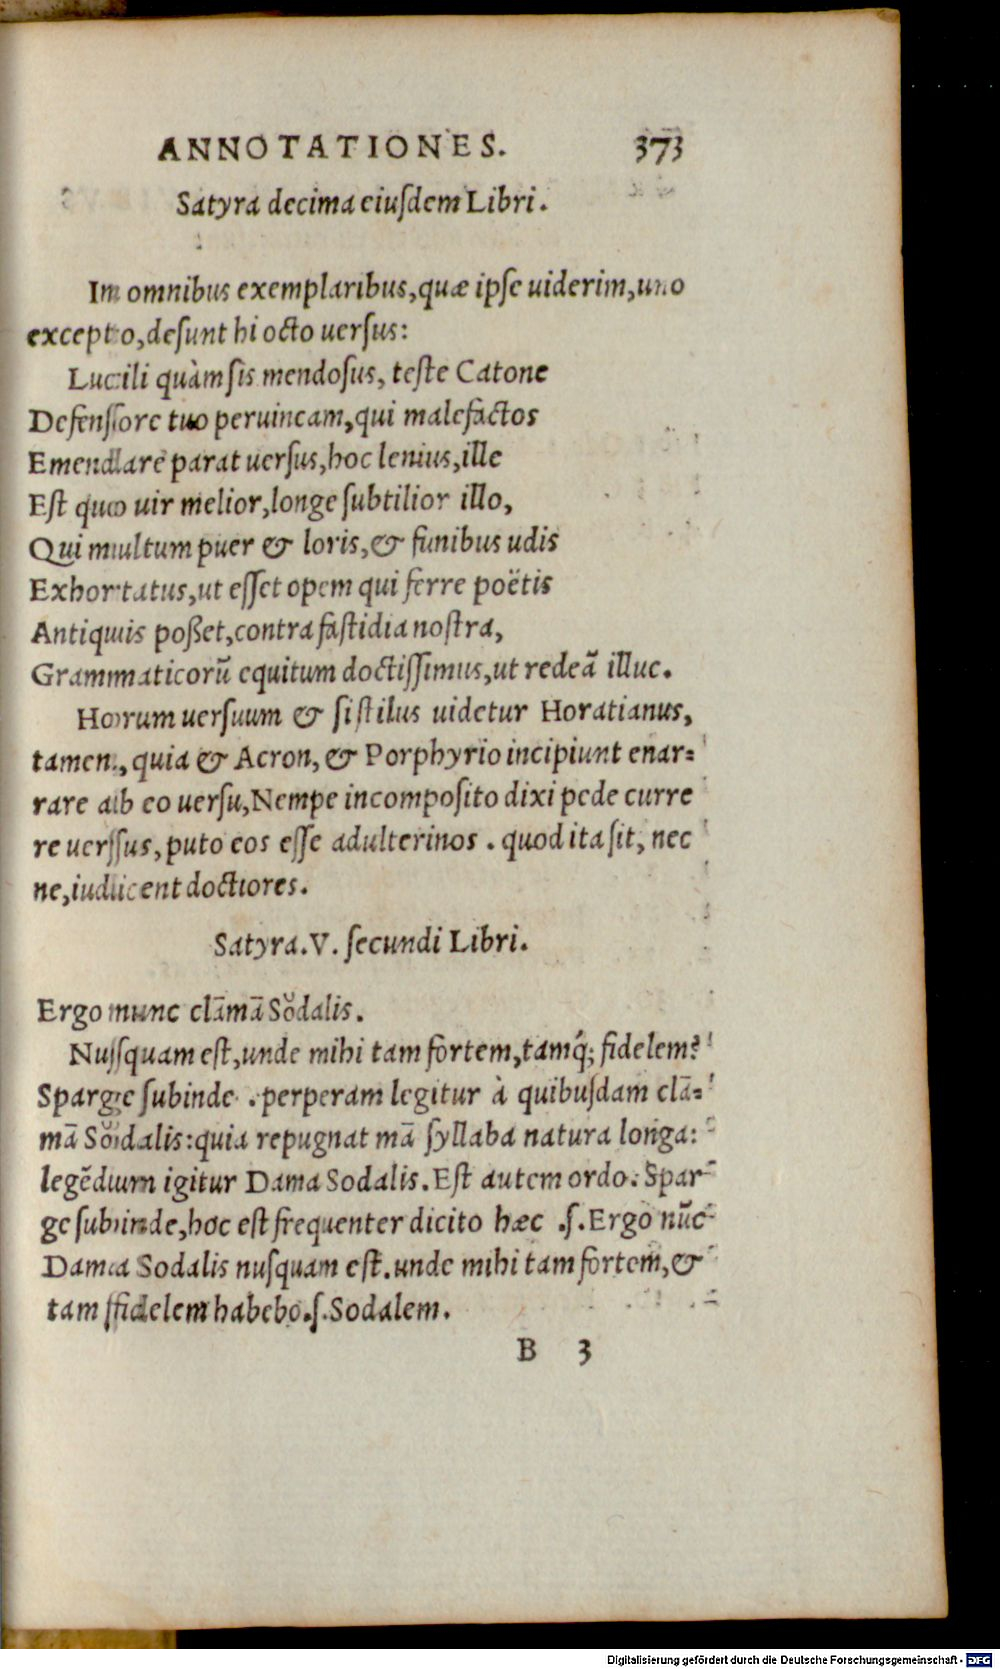 ANNOTATIONES. 373
Satyra decima eiuſdem Libri.
In omnibus exemplaribus, quæ ipſe uiderim, uno
excepto, deſunt hi octo uerſus:
Lucili quàm ſis mendoſus, teſte Catone
Defenſore tuo peruincam, qui malefactos
Emendare parat uerſus, hoc lenius, ille
Eſt quo uir melior, longe ſubtilior illo,
Qui multum puer & loris, & funibus udis
Exhortatus, ut eſſet opem qui ferre poëtis
Antiquis poßet, contra faſtidia noſtra,
Grammaticorũ equitum doctiſſimus, ut redeã illuc.
Horum uerſuum & ſi ſtilus uidetur Horatianus,
tamen, quia & Acron, & Porphyrio incipiunt enar=
rare ab eo uerſu, Nempe incompoſito dixi pede curre
re uerſus, puto eos eſſe adulterinos. quod ita ſit, nec
ne, iudicent doctiores.
Satyra. V. ſecundi Libri.
Ergo nunc clāmā Sŏdalis.
Nuſquam eſt, unde mihi tam fortem, tamq́; fidelem?
Sparge ſubinde. perperam legitur à quibuſdam clā=
mā Sŏdalis: quia repugnat mā ſyllaba natura longa:
legẽdum igitur Dama Sodalis. Eſt autem ordo. Spar=
ge ſubinde, hoc eſt frequenter dicito hæc .ſ. Ergo nũc
Dama Sodalis nuſquam eſt. unde mihi tam fortem, &
tam fidelem habebo. ſ. Sodalem.
B 3
Digitalisierung gefördert durch die Deutsche Forschungsgemeinschaft - DFG